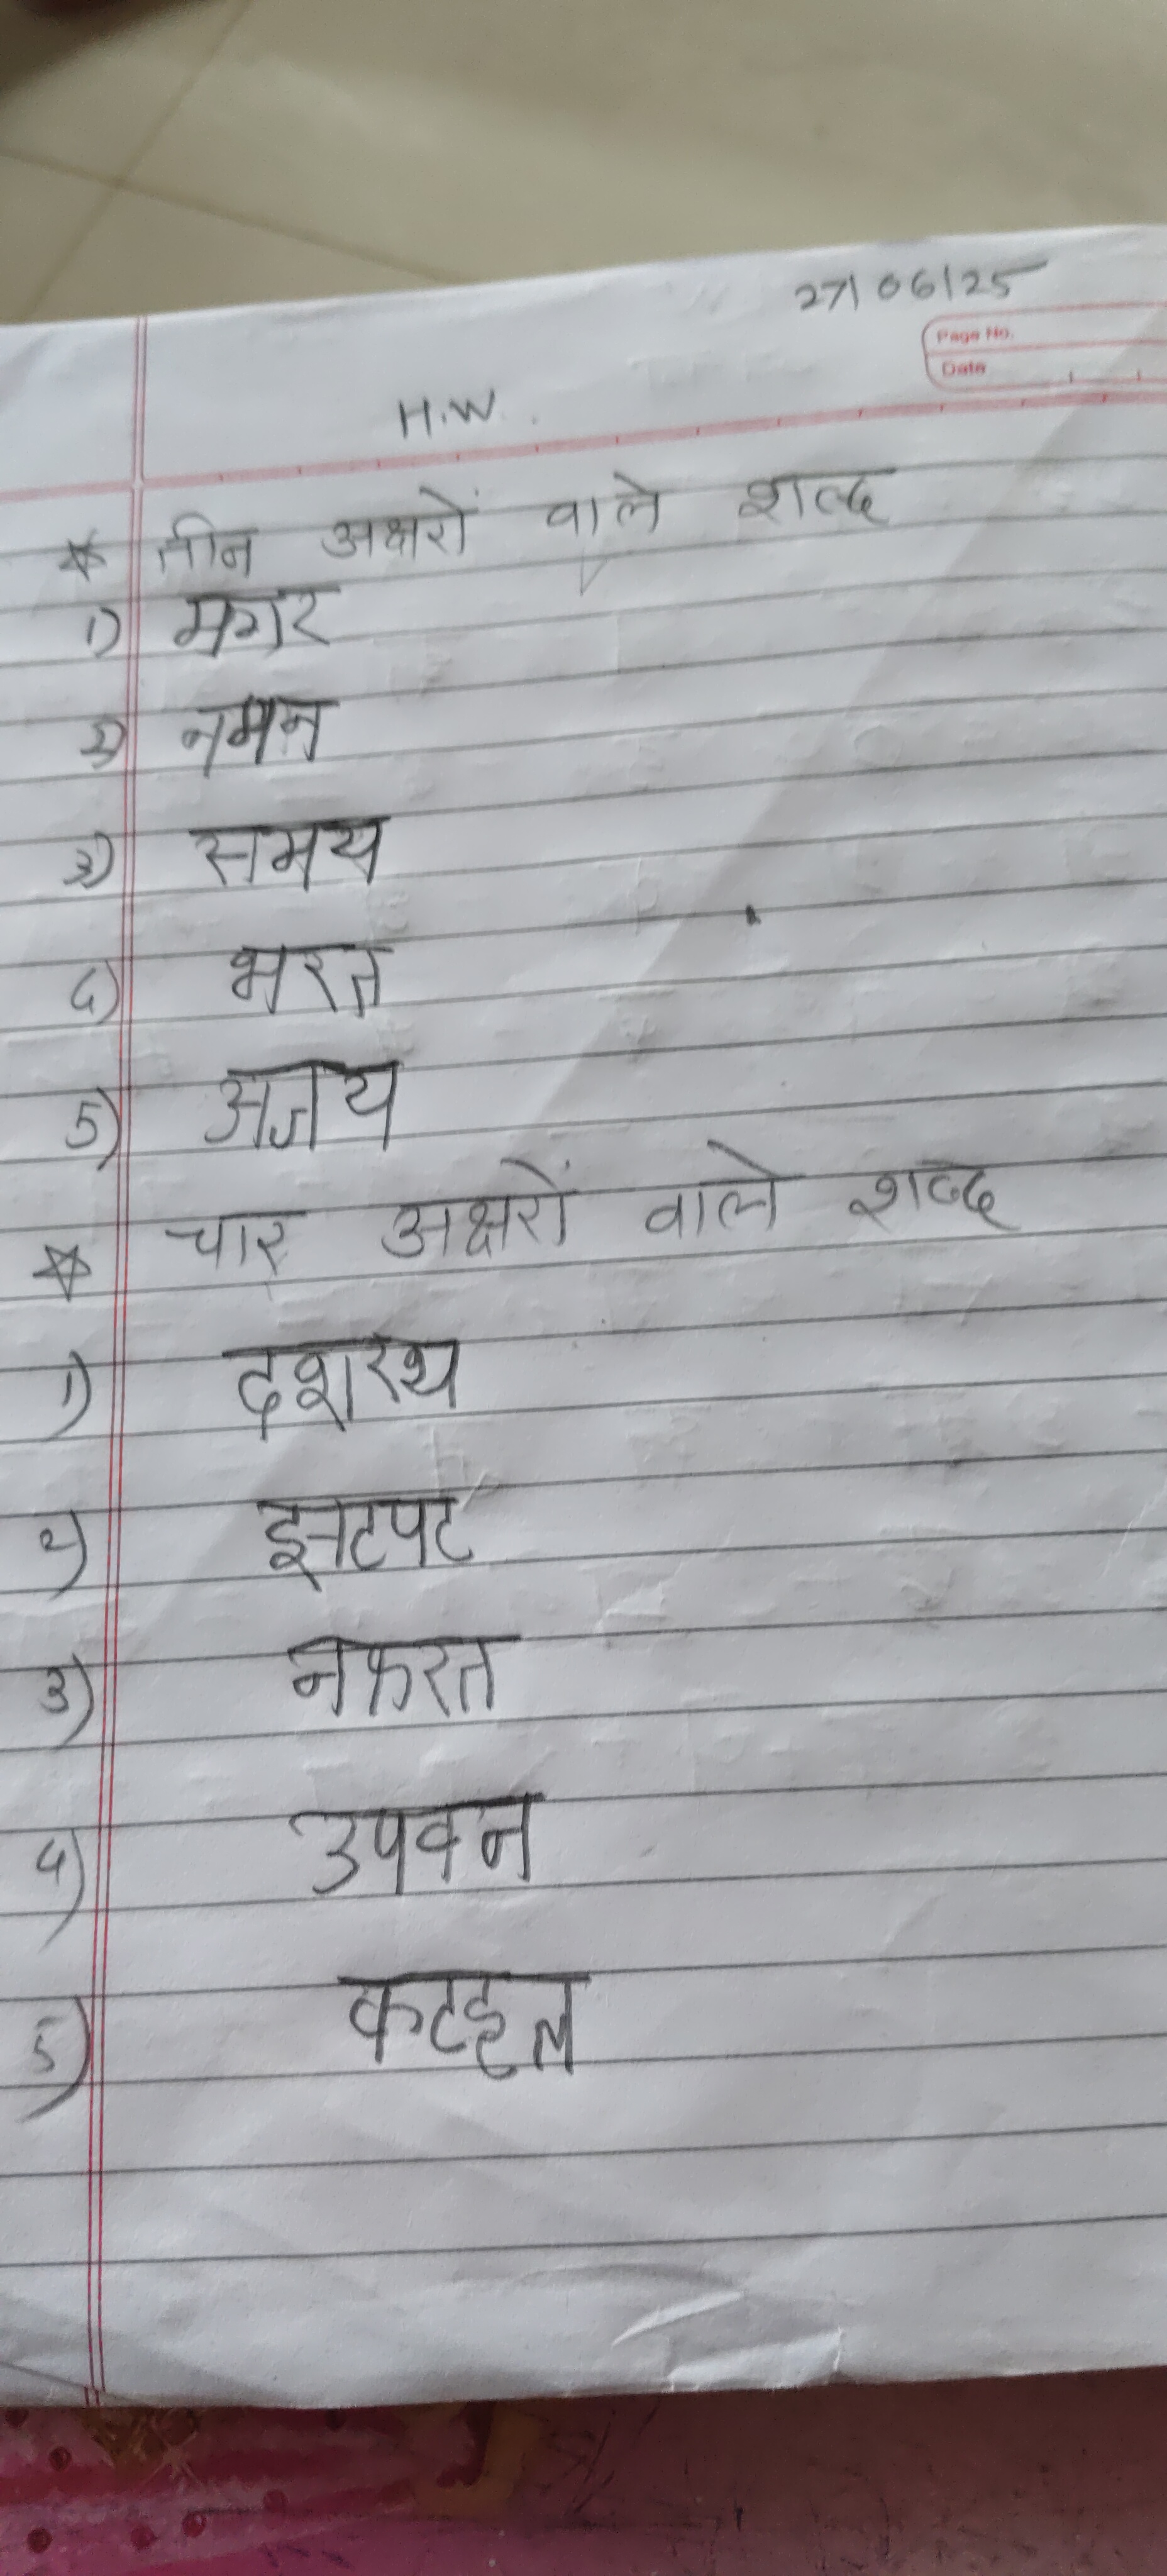 27/06/25
Page No.
Date
H.W.
* तीन अक्षरों वाले शब्द
1) मगर
2) नमन
3) समय
4) भरत
5) अजय
* चार अक्षरों वाले शब्द
1) दशरथ
2) झटपट
3) नफरत
4) उपवन
5) कटहल